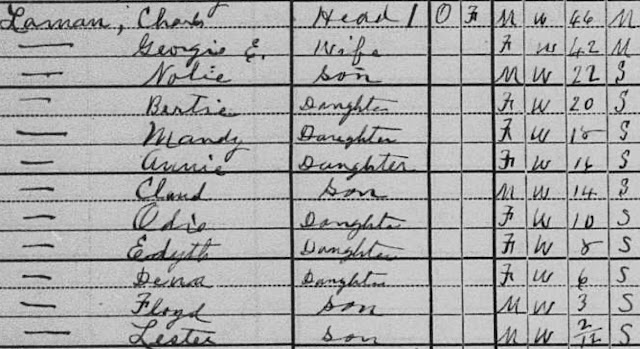 Laman, Charls Head 1 O F M W 46 M
— Georgie E. Wife F W 42 M
— Nolie Son M W 22 S
— Bertie Daughter F W 20 S
— Mandy Daughter F W 18 S
— Annie Daughter F W 16 S
— Claud Son M W 14 S
— Odis Daughter F W 10 S
— Edyth Daughter F W 8 S
— Dena Daughter F W 6 S
— Floyd Son M W 3 S
— Lester Son M W 2/12 S